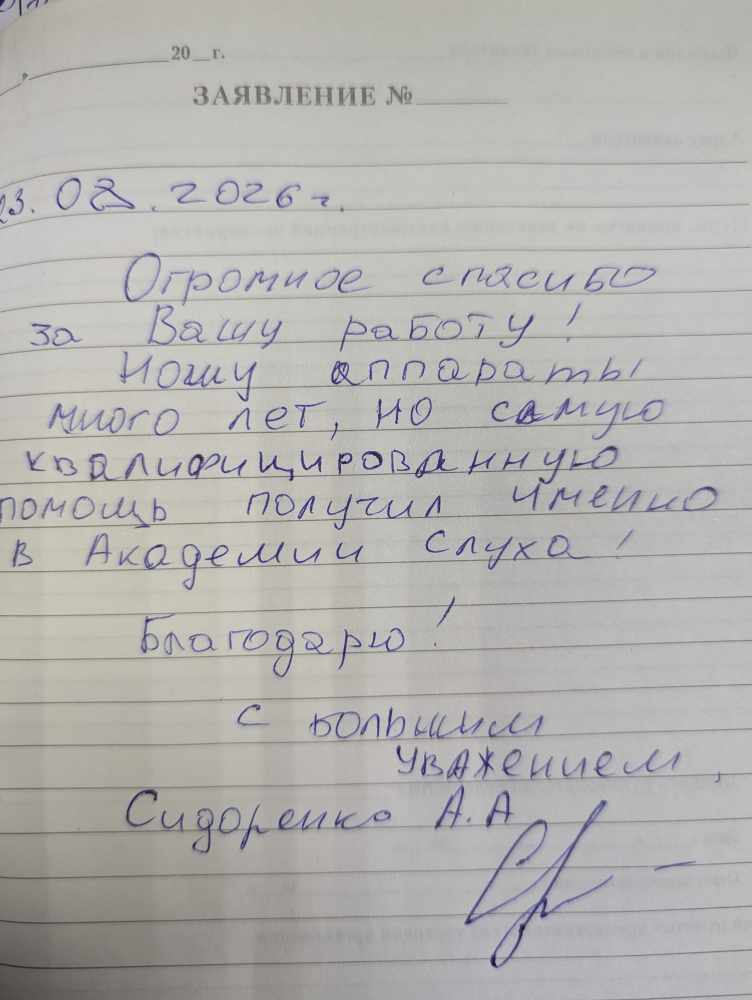 20__г.
ЗАЯВЛЕНИЕ №
23. 02. 2026 г.
Огромное спасибо
за Вашу работу!
Ношу аппараты
много лет, но самую
квалифицированную
помощь получил именно
в Академии слуха!
Благодарю!
С большим
уважением,
Сидоренко А.А